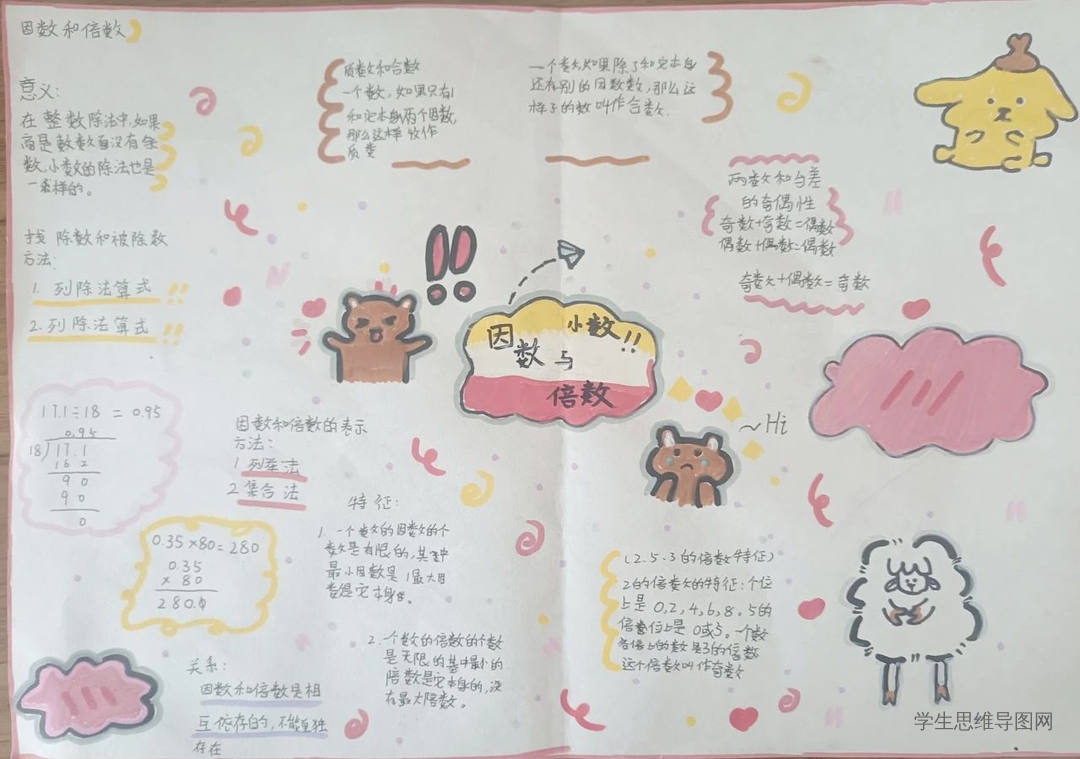 因数和倍数
意义:
在整数除法中,如果
商是数数自没有余
数,小数的除法也是
一样的。
找除数和被除数
方法:
1.列除法算式
2.列除法算式
17.1÷18=0.95
0.95
18 17.1
16 2
9 0
9 0
0
0.35×80=280
0.35
× 80
280.0
因数和倍数的表示
方法:
1 列举法
2 集合法
关系:
因数和倍数是相
互依存的,不能单独
存在
质数和合数
一个数,如果只有1
和它本身两个因数,
那么这样 叫作
质数
一个数,如果除了和它本身
还有别的因数数,那么这
样子的数叫作合数.
两数和与差
的奇偶性
奇数+奇数=偶数
偶数+偶数=偶数
奇数+偶数=奇数
因数与
小数!!
倍数
~Hi
特征:
1.一个数的因数的个
数是有限的,其中
最小因数是1最大因
数是它本身。
2.一个数的倍数的个数
是无限的其中最小的
倍数是它本身的,没
有最大倍数。
(2.5.3的倍数特征)
2的倍数的特征:个位
上是0,2,4,6,8.5的
倍数位上是0或5.一个数
各位上的数是3的倍数
这个倍数叫作奇数
学生思维导图网